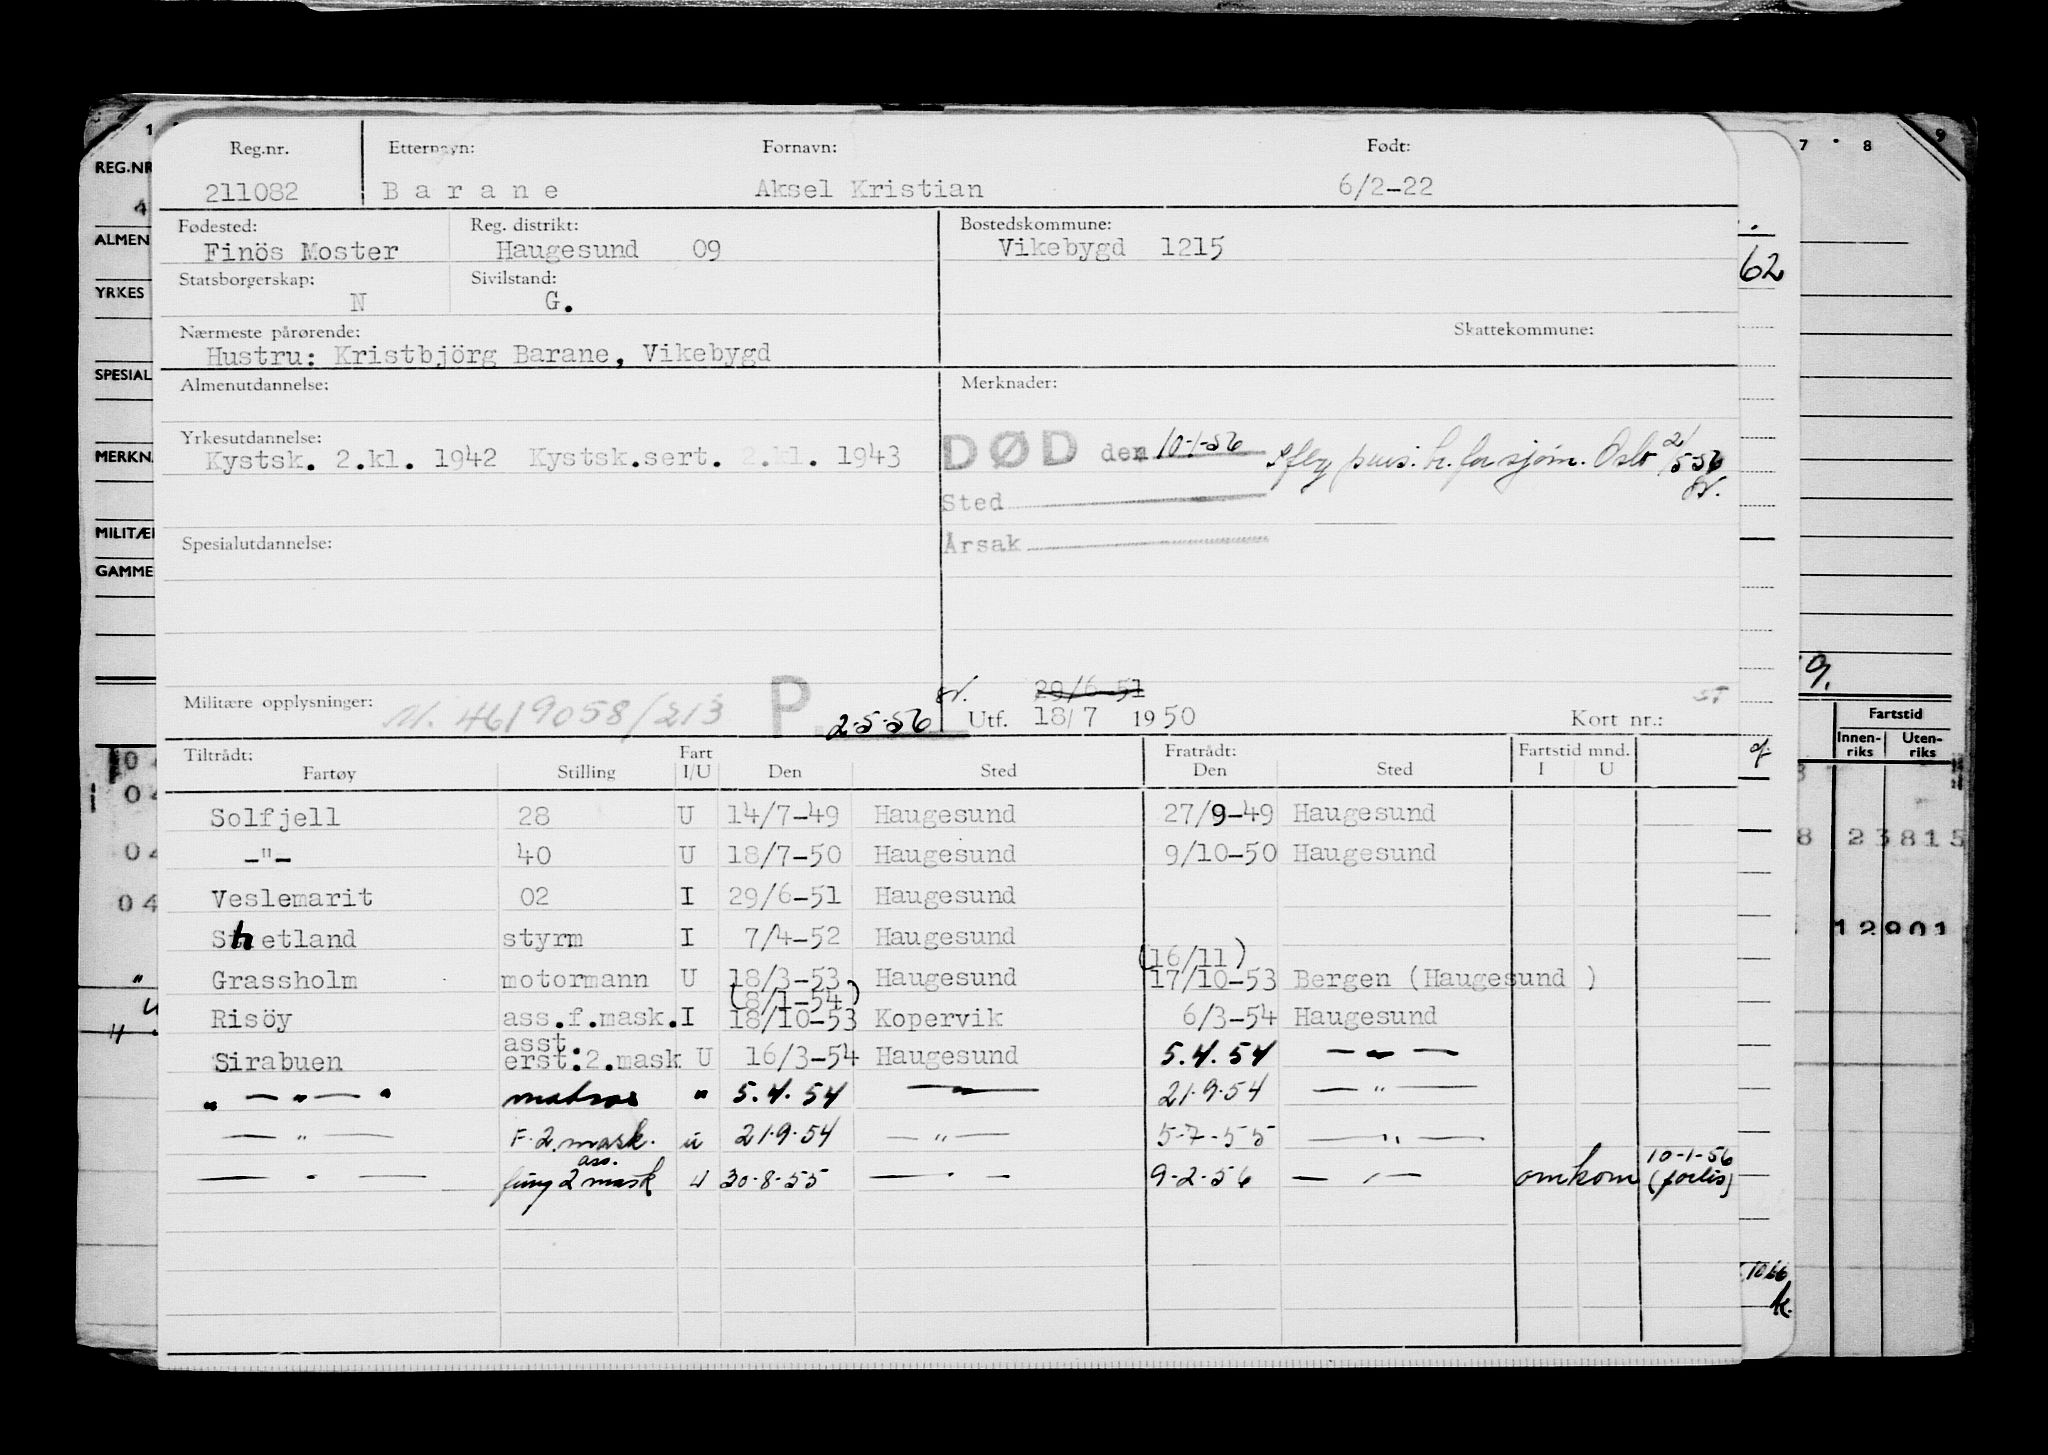 Reg.nr. Etternavn: Fornavn: Født:
211082 Barane Aksel Kristian 6/2-22
Fødested: Reg. distrikt: Bostedskommune:
Finös Moster Haugesund 09 Vikebygd 1215
Statsborgerskap: Sivilstand:
N G.
Nærmeste pårørende: Skattekommune:
Hustru: Kristbjörg Barane, Vikebygd
Almenutdannelse: Merknader:
Yrkesutdannelse:
Kystsk. 2.kl. 1942 Kystsk.sert. 2.kl. 1943 DØD den 10-1-56 for sjøm. Oslo 2/5-56
Sted
Spesialutdannelse: Årsak
29/6-51
Militære opplysninger: M. 4619058/213 P. 2-5-56 Utf. 18/7 1950 Kort nr.:
Tiltrådt: Fart Fratrådt: Fartstid mnd.
Fartøy Stilling I/U Den Sted Den Sted I U
Solfjell 28 U 14/7-49 Haugesund 27/9-49 Haugesund
—"— 40 U 18/7-50 Haugesund 9/10-50 Haugesund
Veslemarit 02 I 29/6-51 Haugesund
Shetland styrm I 7/4-52 Haugesund
(16/11)
Grassholm motormann U 18/3-53 Haugesund 17/10-53 Bergen (Haugesund )
(8/1-54)
Risöy ass.f.mask. I 18/10-53 Kopervik 6/3-54 Haugesund
asst.
Sirabuen erst.2.mask U 16/3-54 Haugesund 5.4.54 — " —
" — " — " matros " 5.4.54 — " — 21.9.54 — " —
— " — F. 2. mask. u 21.9.54 — " — 5-7-55 — " —
ass. 10-1-56
— " — fung 2 mask u 30-8-55 — " — 9-2-56 — " — omkom (forlis)
REG.NR
4
ALMEN
YRKES
SPESIAL
MERKN.
MILITÆR
GAMME
1
7 8 9
62
Fartstid
Innen- Uten-
riks riks
8 23815
12901
04
04
04